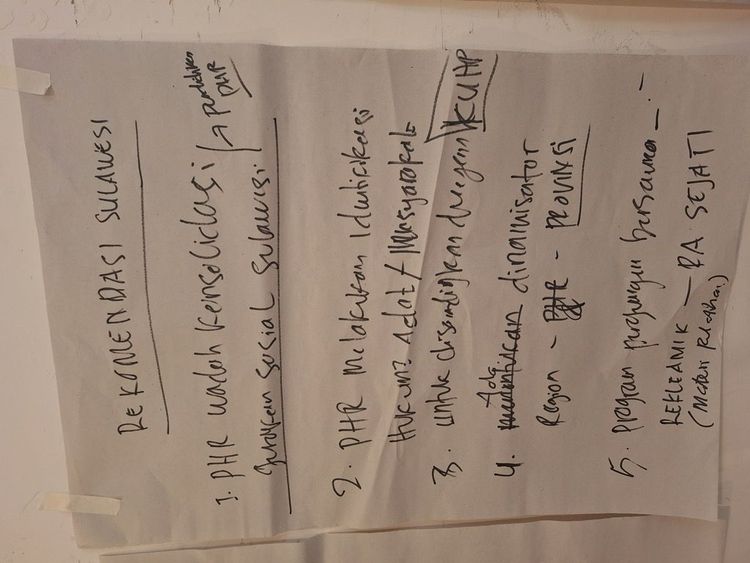 REKOMENDASI SULAWESI
1. PHR wadah Konsolidasi → pendidikan PHR
gerakan sosial sulawesi
2. PHR Melakukan Identifikasi
Hukum2 Adat / Masyarakat
3. untuk disandingkan dengan KUHP
4. Ada dinamisator
Region - PHR - PROVINSI
5. Program perjuangan bersama -
REKLAMIK - RA. SEJATI
(Materi